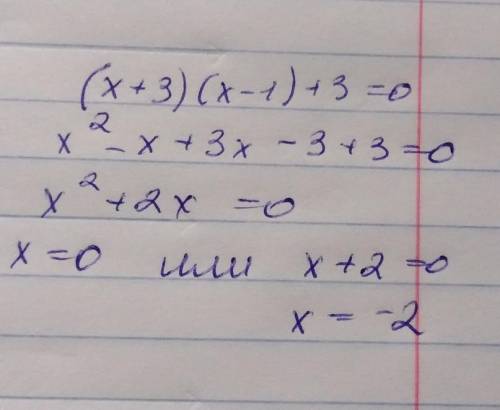 (x+3)(x-1)+3=0
x² - x + 3x - 3 + 3 = 0
x² + 2x = 0
x = 0 или x + 2 = 0
x = -2